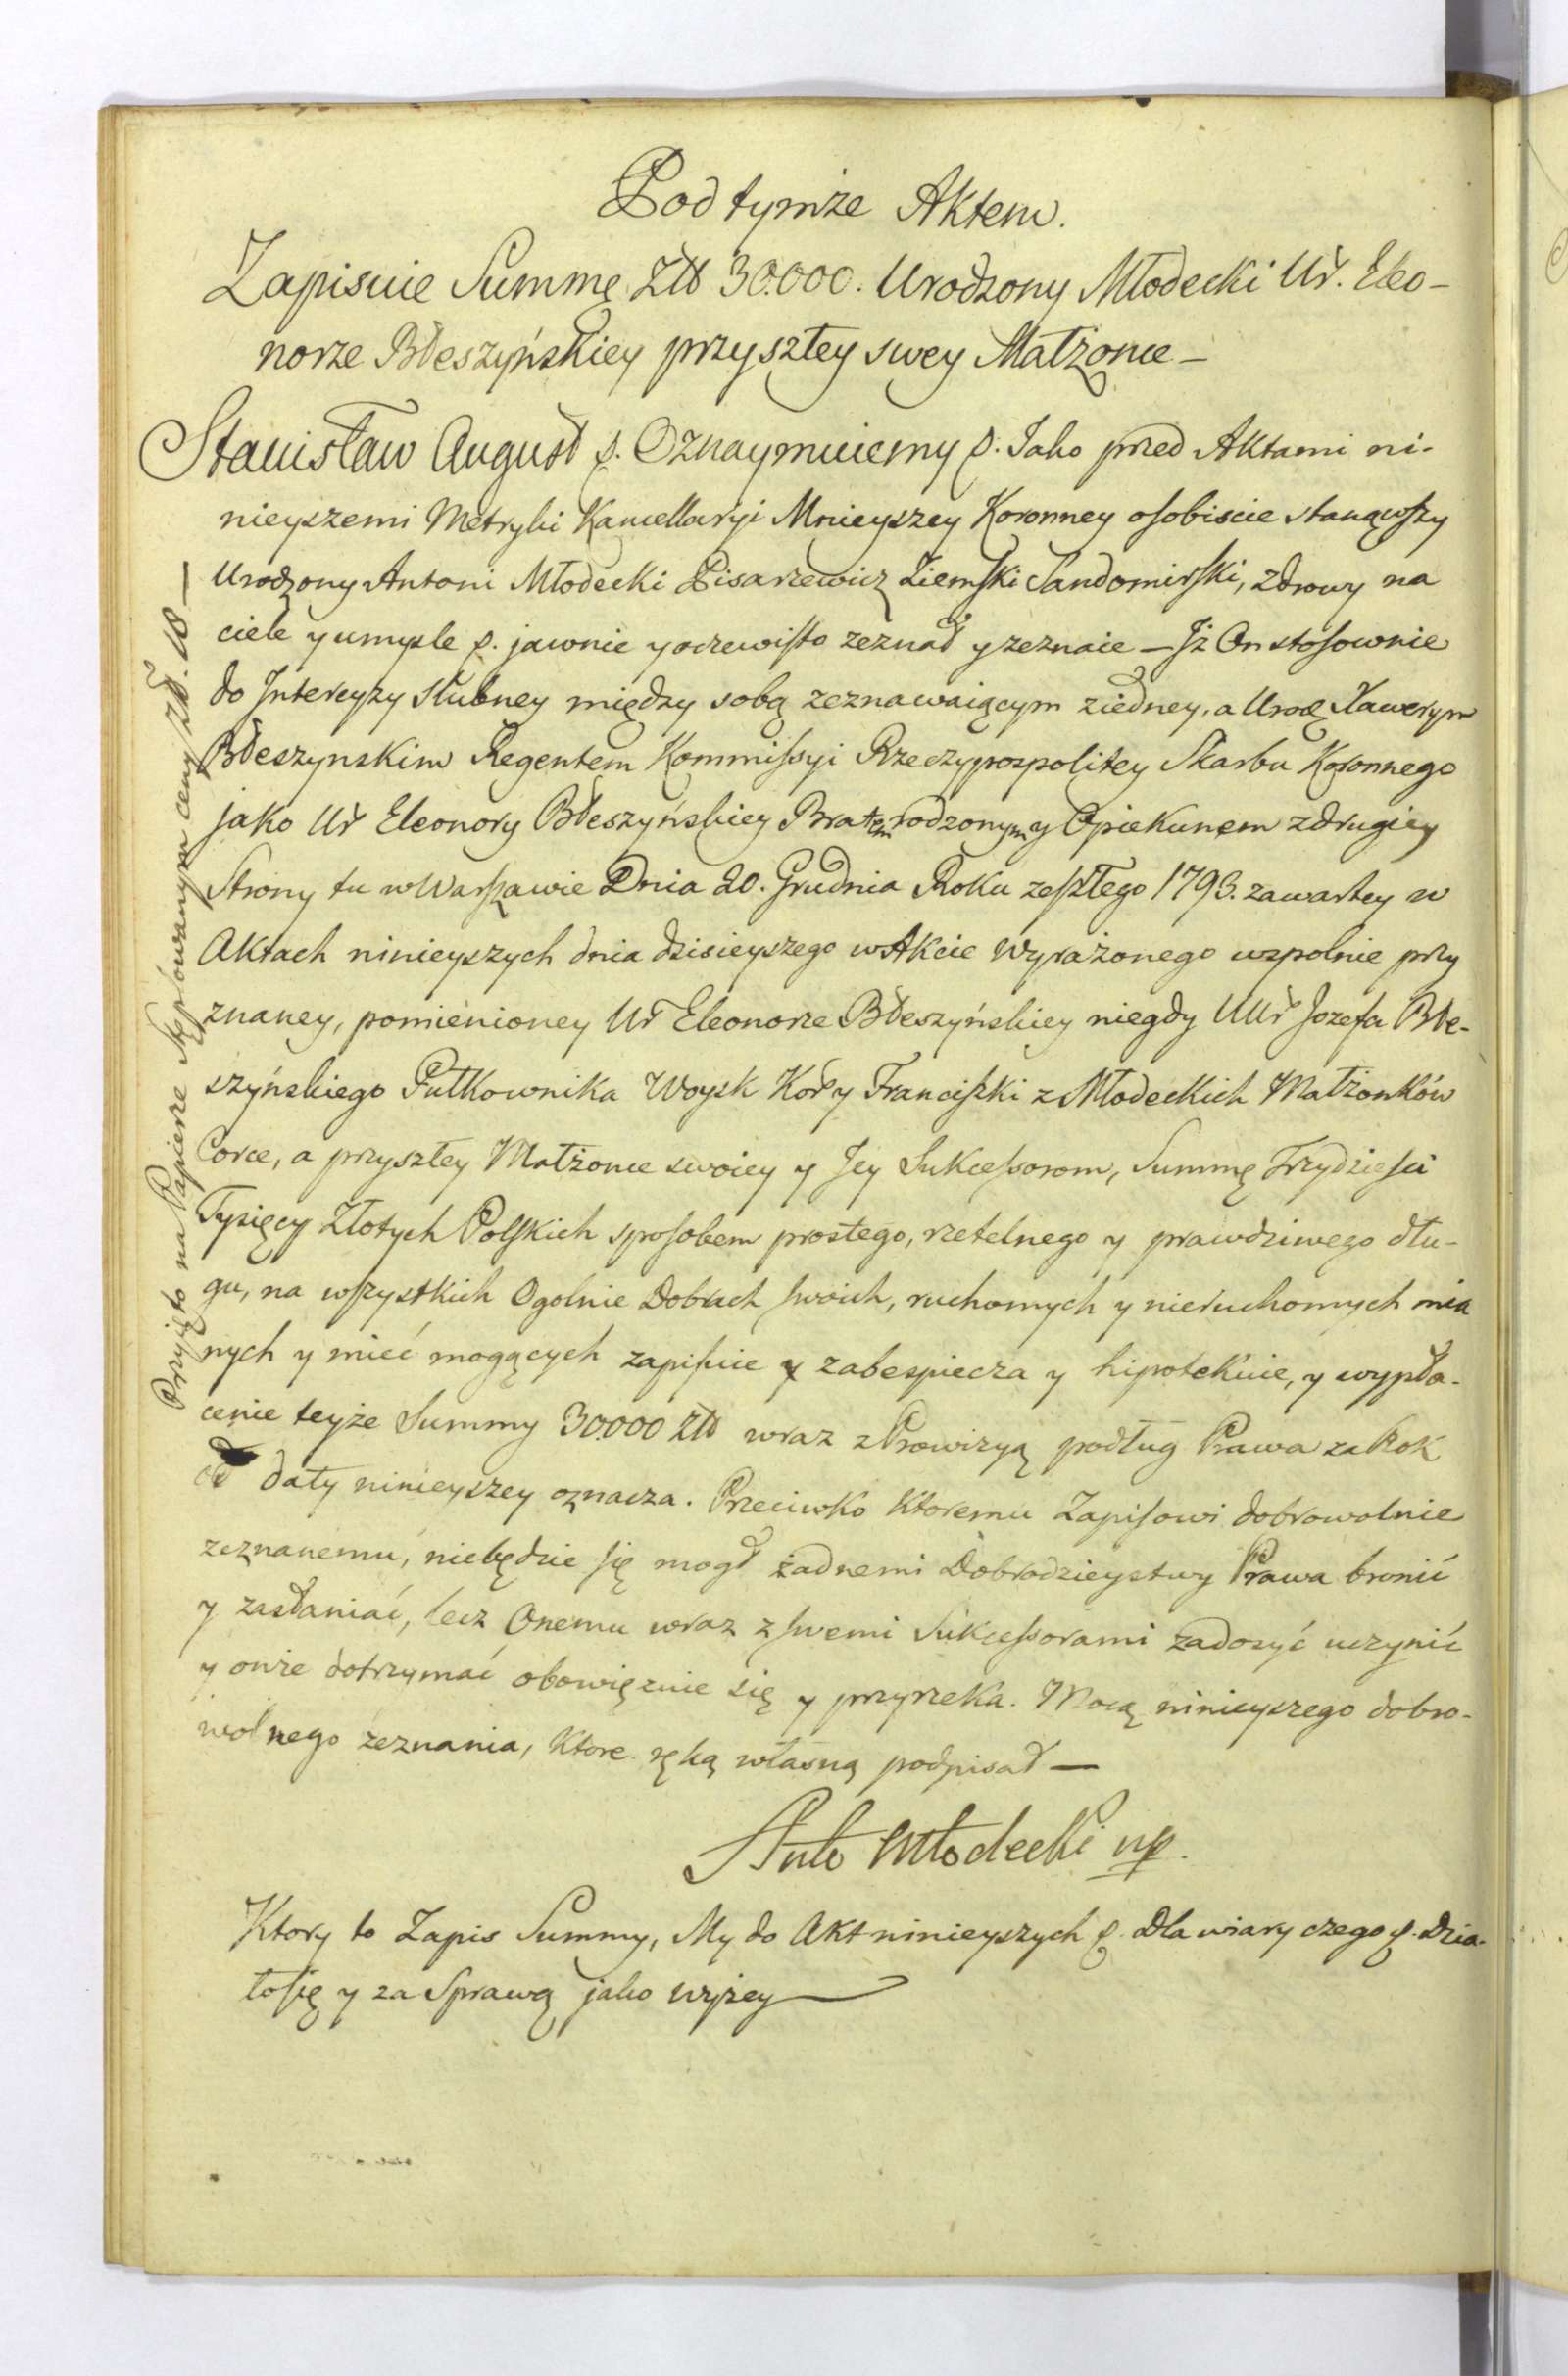 Pod tymże Aktem.
Zapisuie Summę Złł 30.000. Urodzony Młodecki Ur. Eleo-
norze Błeszyńskiey przyszłey swey Małżonce —
Stanisław August p. Oznaymuiemy p. Jako przed Aktami ni-
nieyszemi Metryki Kancellaryi Mnieyszey Koronney osobiscie stanąwszy
Urodzony Antoni Młodecki Pisarzewicz Ziemski Sandomirski, zdrowy na
ciele y umysle p. jawnie y oczewisto zeznał y zeznaie — Jż On stosownie
do Jntercyzy slubney między sobą zeznawaiącym ziedney, a Urod. Xawerym
Błeszynskim Regentem Kommissyi Rzeczypospolitey Skarbu Koronnego
jako Ur Eleonory Błeszyńskiey Bratem rodzonym y Opiekunem zdrugiey
Strony tu w Warszawie Dnia 20. Grudnia Roku zeszłego 1793. zawartey w
Aktach ninieyszych dnia dzisieyszego w Akcie wyrażonego wspolnie przy
znaney, pomienioney Ur Eleonorze Błeszyńskiey niegdy UUr Jozefa Błe-
szyńskiego Pułkownika Woysk Kor y Franciszki z Młodeckich Małżonków
Corce, a przyszłey Małżonce swoiey y Jey Sukcessorom, Summę Trzydziesci
Tysięcy Złotych Polskich sposobem prostego, rzetelnego y prawdziwego dłu-
gu, na wszystkich Ogolnie Dobrach swoich, ruchomych y nieruchomych mia
nych y mieć mogących zapisuie y zabespiecza y hipotekuie, y wypła-
cenie teyże Summy 30.000 Złł wraz z Prowizyą podług Prawa za Rok
od daty ninieyszey oznacza. Przeciwko ktoremu Zapisowi dobrowolnie
zeznanemu, niebędzie się mogł żadnemi Dobrodzieystwy Prawa bronić
y zasłaniać, lecz Onemu wraz z swemi Sukcessorami zadosyć uczynić
y onże dotrzymać obowięzuie się y przyrzeka. Mocą ninieyszego dobro-
wolnego zeznania, ktore ręką własną podpisał —
Anto Młodecki mp.
Ktory to Zapis Summy, My do Akt ninieyszych p. Dla wiary czego p. Dzia-
łosię y za Sprawą jako wyżey
Przyięto na Papierze Stęplowanym ceny Zł. 10 —